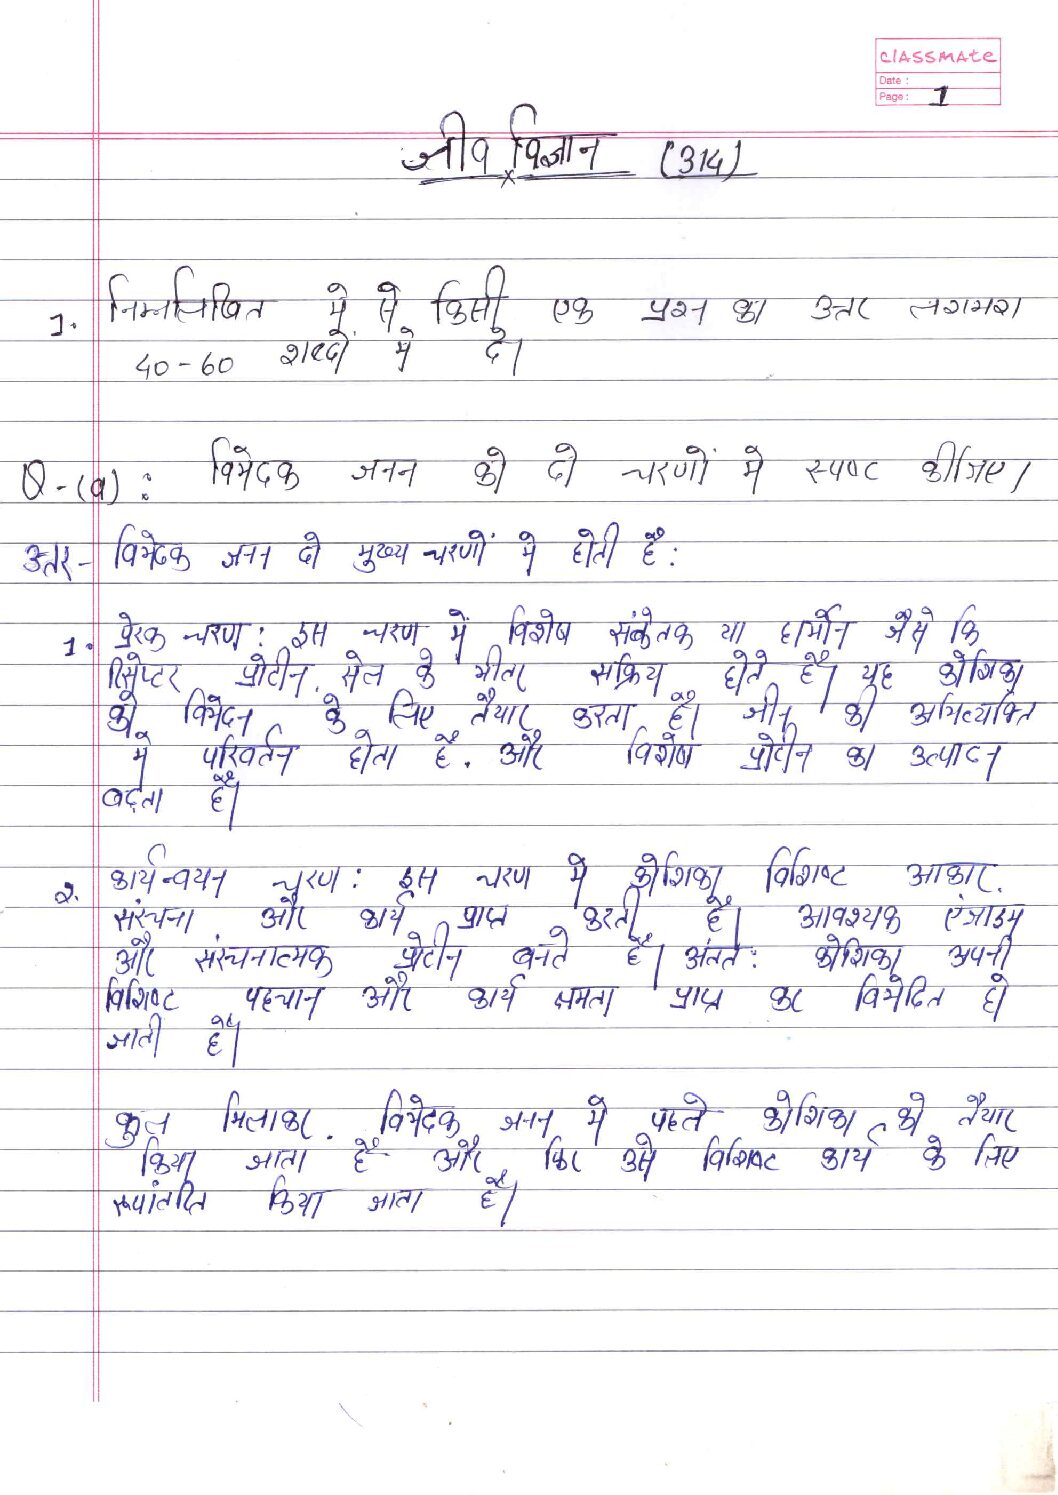 classmate
Date :
Page : 1
जीव विज्ञान (314)
1. निम्नलिखित में से किसी एक प्रश्न का उत्तर लगभग
40-60 शब्दों में दें।
Q-(a): विभेदक जनन को दो चरणों में स्पष्ट कीजिए।
उत्तर- विभेदक जनन दो मुख्य चरणों में होती है:
1. प्रेरक चरण: इस चरण में विशेष संकेतक या हार्मोन जैसे कि
रिसेप्टर प्रोटीन, सेल के भीतर सक्रिय होते हैं। यह कोशिका
को विभेदन के लिए तैयार करता है। जीन की अभिव्यक्ति
में परिवर्तन होता है. और विशेष प्रोटीन का उत्पादन
बढ़ता है।
2. कार्यन्वयन चरण: इस चरण में कोशिका विशिष्ट आकार,
संरचना और कार्य प्राप्त करती है। आवश्यक एंजाइम
और संरचनात्मक प्रोटीन बनते हैं। अंतत: कोशिका अपनी
विशिष्ट पहचान और कार्य क्षमता प्राप्त कर विभेदित हो
जाती है।
कुल मिलाकर, विभेदक जनन में पहले कोशिका को तैयार
किया जाता है और फिर उसे विशिष्ट कार्य के लिए
रूपांतरित किया जाता है।